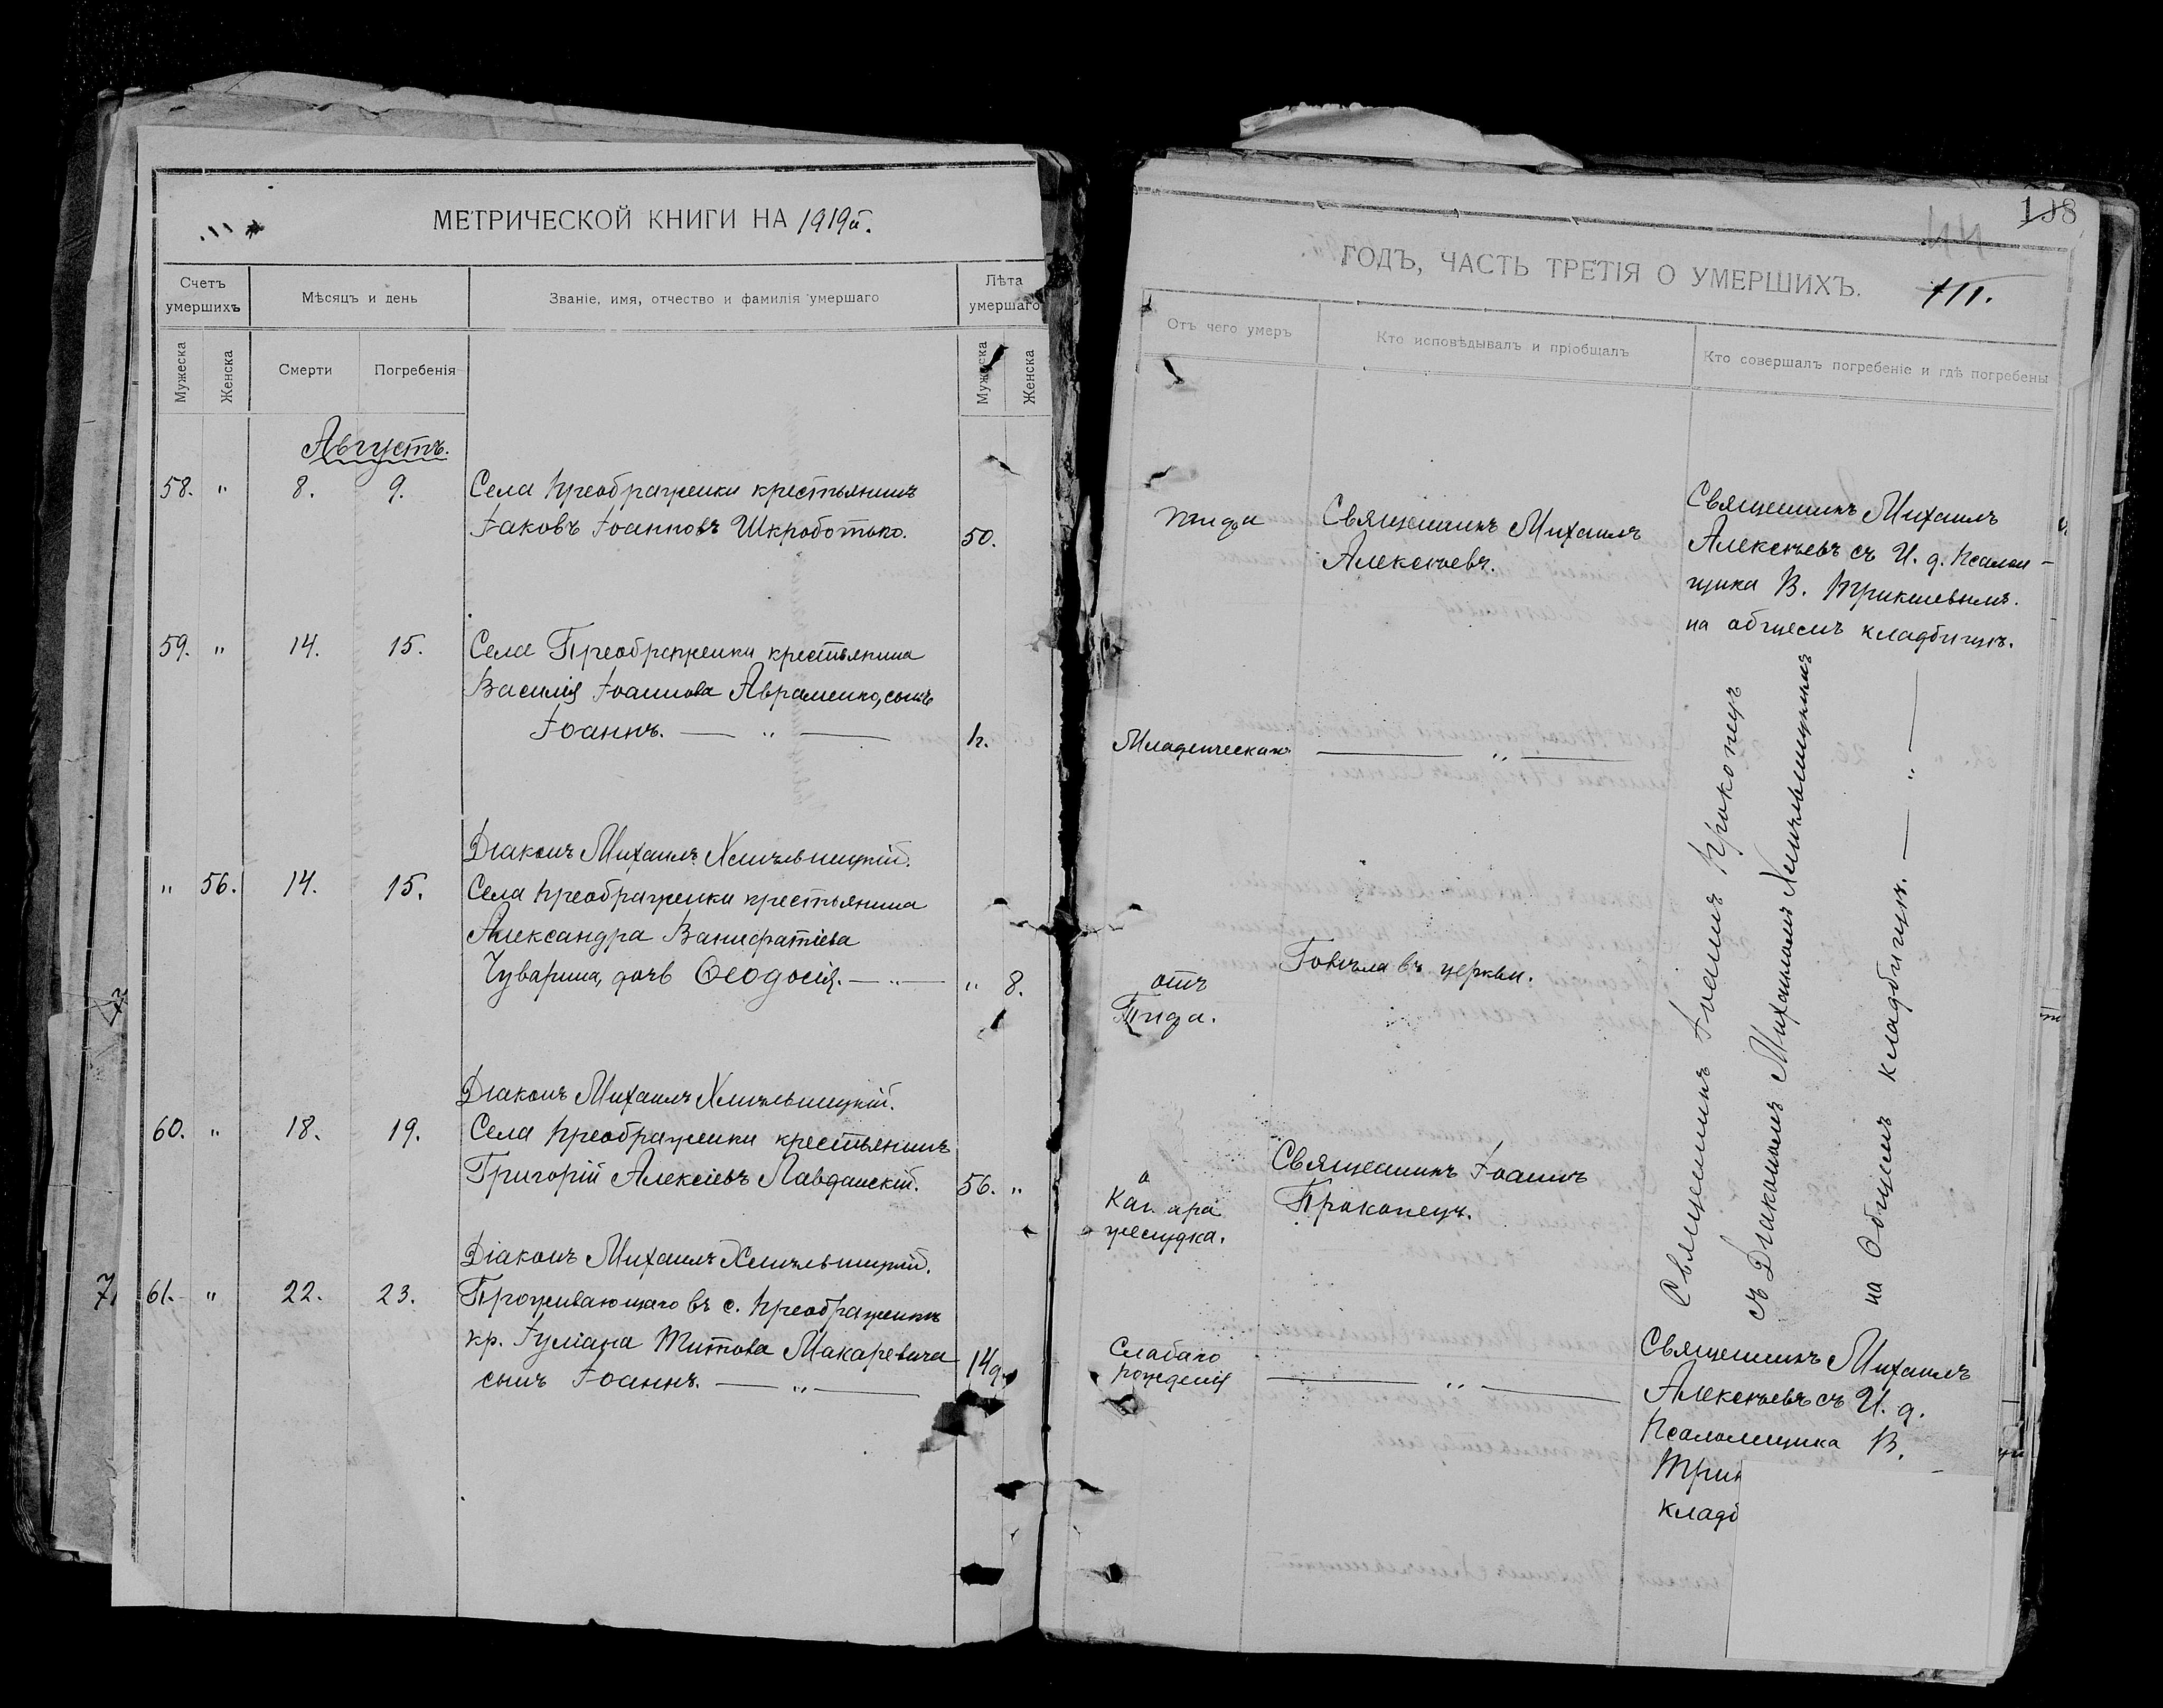 МЕТРИЧЕСКОЙ КНИГИ НА 1919й.
Счетъ умершихъ
Мѣсяцъ и день
Званіе, имя, отчество и фамилія умершаго
Лѣта умершаго
Мужеска
Женска
Смерти
Погребенія
Мужеска
Женска
Августъ.
58. " 8. 9. Села Преображенки крестьянинъ
Іаковъ Іоанновъ Шкроботько. 50.
59. " 14. 15. Села Преображенки крестьянина
Василія Іоаннова Авраменко, сынъ
Іоаннъ. — " — 1г.
Діаконъ Михаилъ Хмѣльницкій.
" 56. 14. 15. Села Преображенки крестьянина
Александра Ванифатіева
Чуварина, дочь Ѳеодосія. — " — " 8.
Діаконъ Михаилъ Хмѣльницкій.
60. " 18. 19. Села Преображенки крестьянинъ
Григорій Алексіевъ Лавданскій. 56. "
Діаконъ Михаилъ Хмѣльницкій.
61. " 22. 23. Проживающаго въ с. Преображенкѣ
кр. Іуліана Титова Макаревича
сынъ Іоаннъ. — " — 14д.
108
44
ГОДЪ, ЧАСТЬ ТРЕТІЯ О УМЕРШИХЪ.
111.
Отъ чего умеръ
Кто исповѣдывалъ и пріобщалъ
Кто совершалъ погребеніе и гдѣ погребены
тифа
Священникъ Михаилъ
Алексѣевъ.
Священникъ Михаилъ
Алексѣевъ съ И. д. Псалом-
щика В.
на общемъ кладбищѣ.
Младенческая
— " —
отъ
Тифа.
Говѣла въ церкви.
Священникъ Іоаннъ Прокопецъ
съ Діакономъ Михаиломъ Хмѣльницкимъ
на Общемъ кладбищѣ. — " —
желудка.
Священникъ Іоаннъ
Прокопецъ.
Слабаго
рожденія
— " —
Священникъ Михаилъ
Алексѣевъ съ И. д.
Псаломщика В.
Трик
кладб